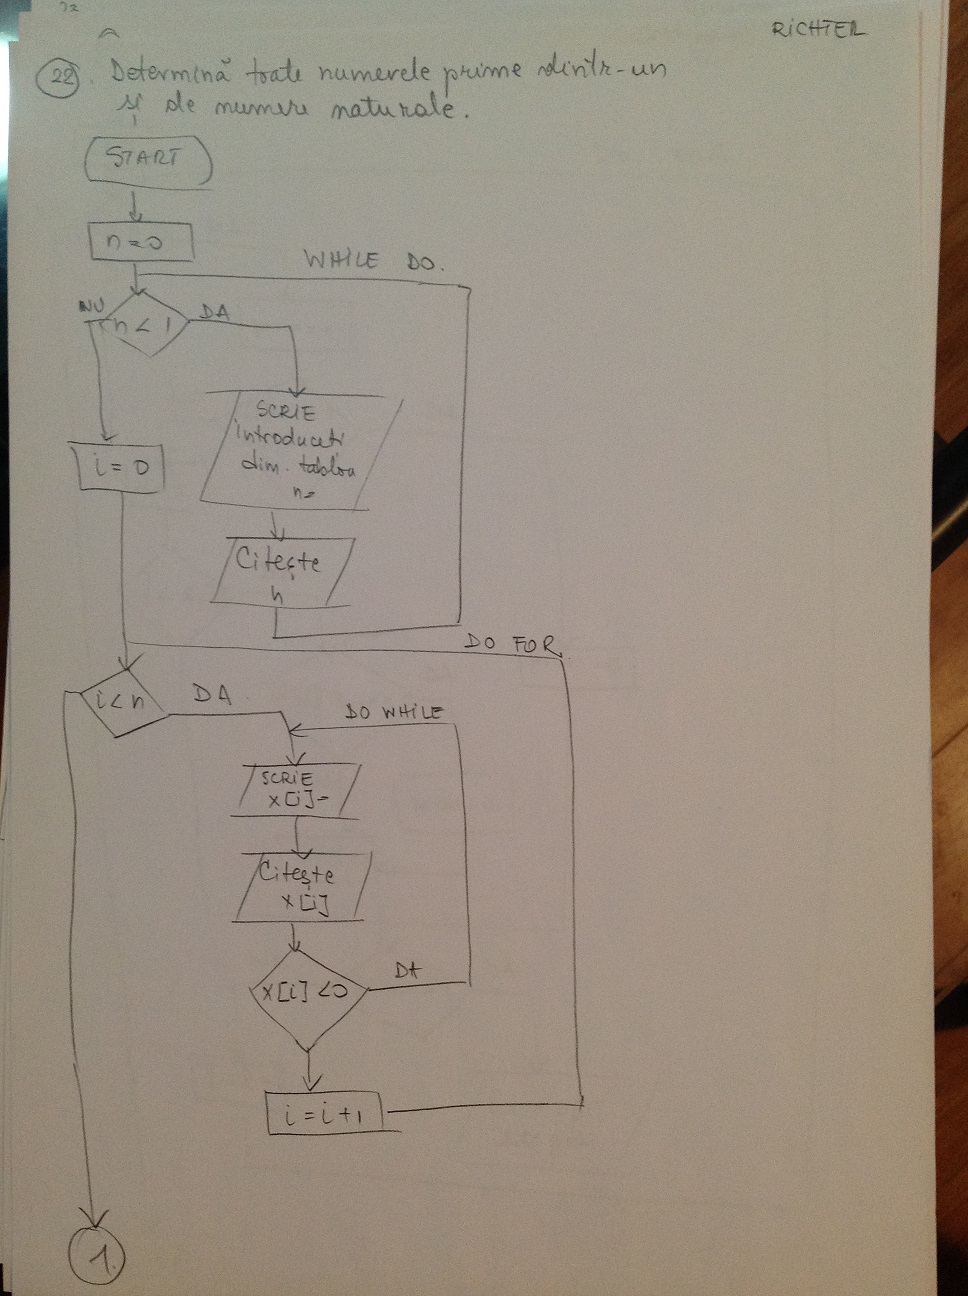 RICHTER
22. Determină toate numerele prime dintr-un
șir de numere naturale.
START
n=0
WHILE DO.
NU
n < 1
DA
SCRIE
introduceti
dim. tablou
n=
i = 0
Citește
n
DO FOR
i < n
DA
DO WHILE
SCRIE
x[i]=
Citește
x[i]
x[i] <0
DA
i = i+1
1.